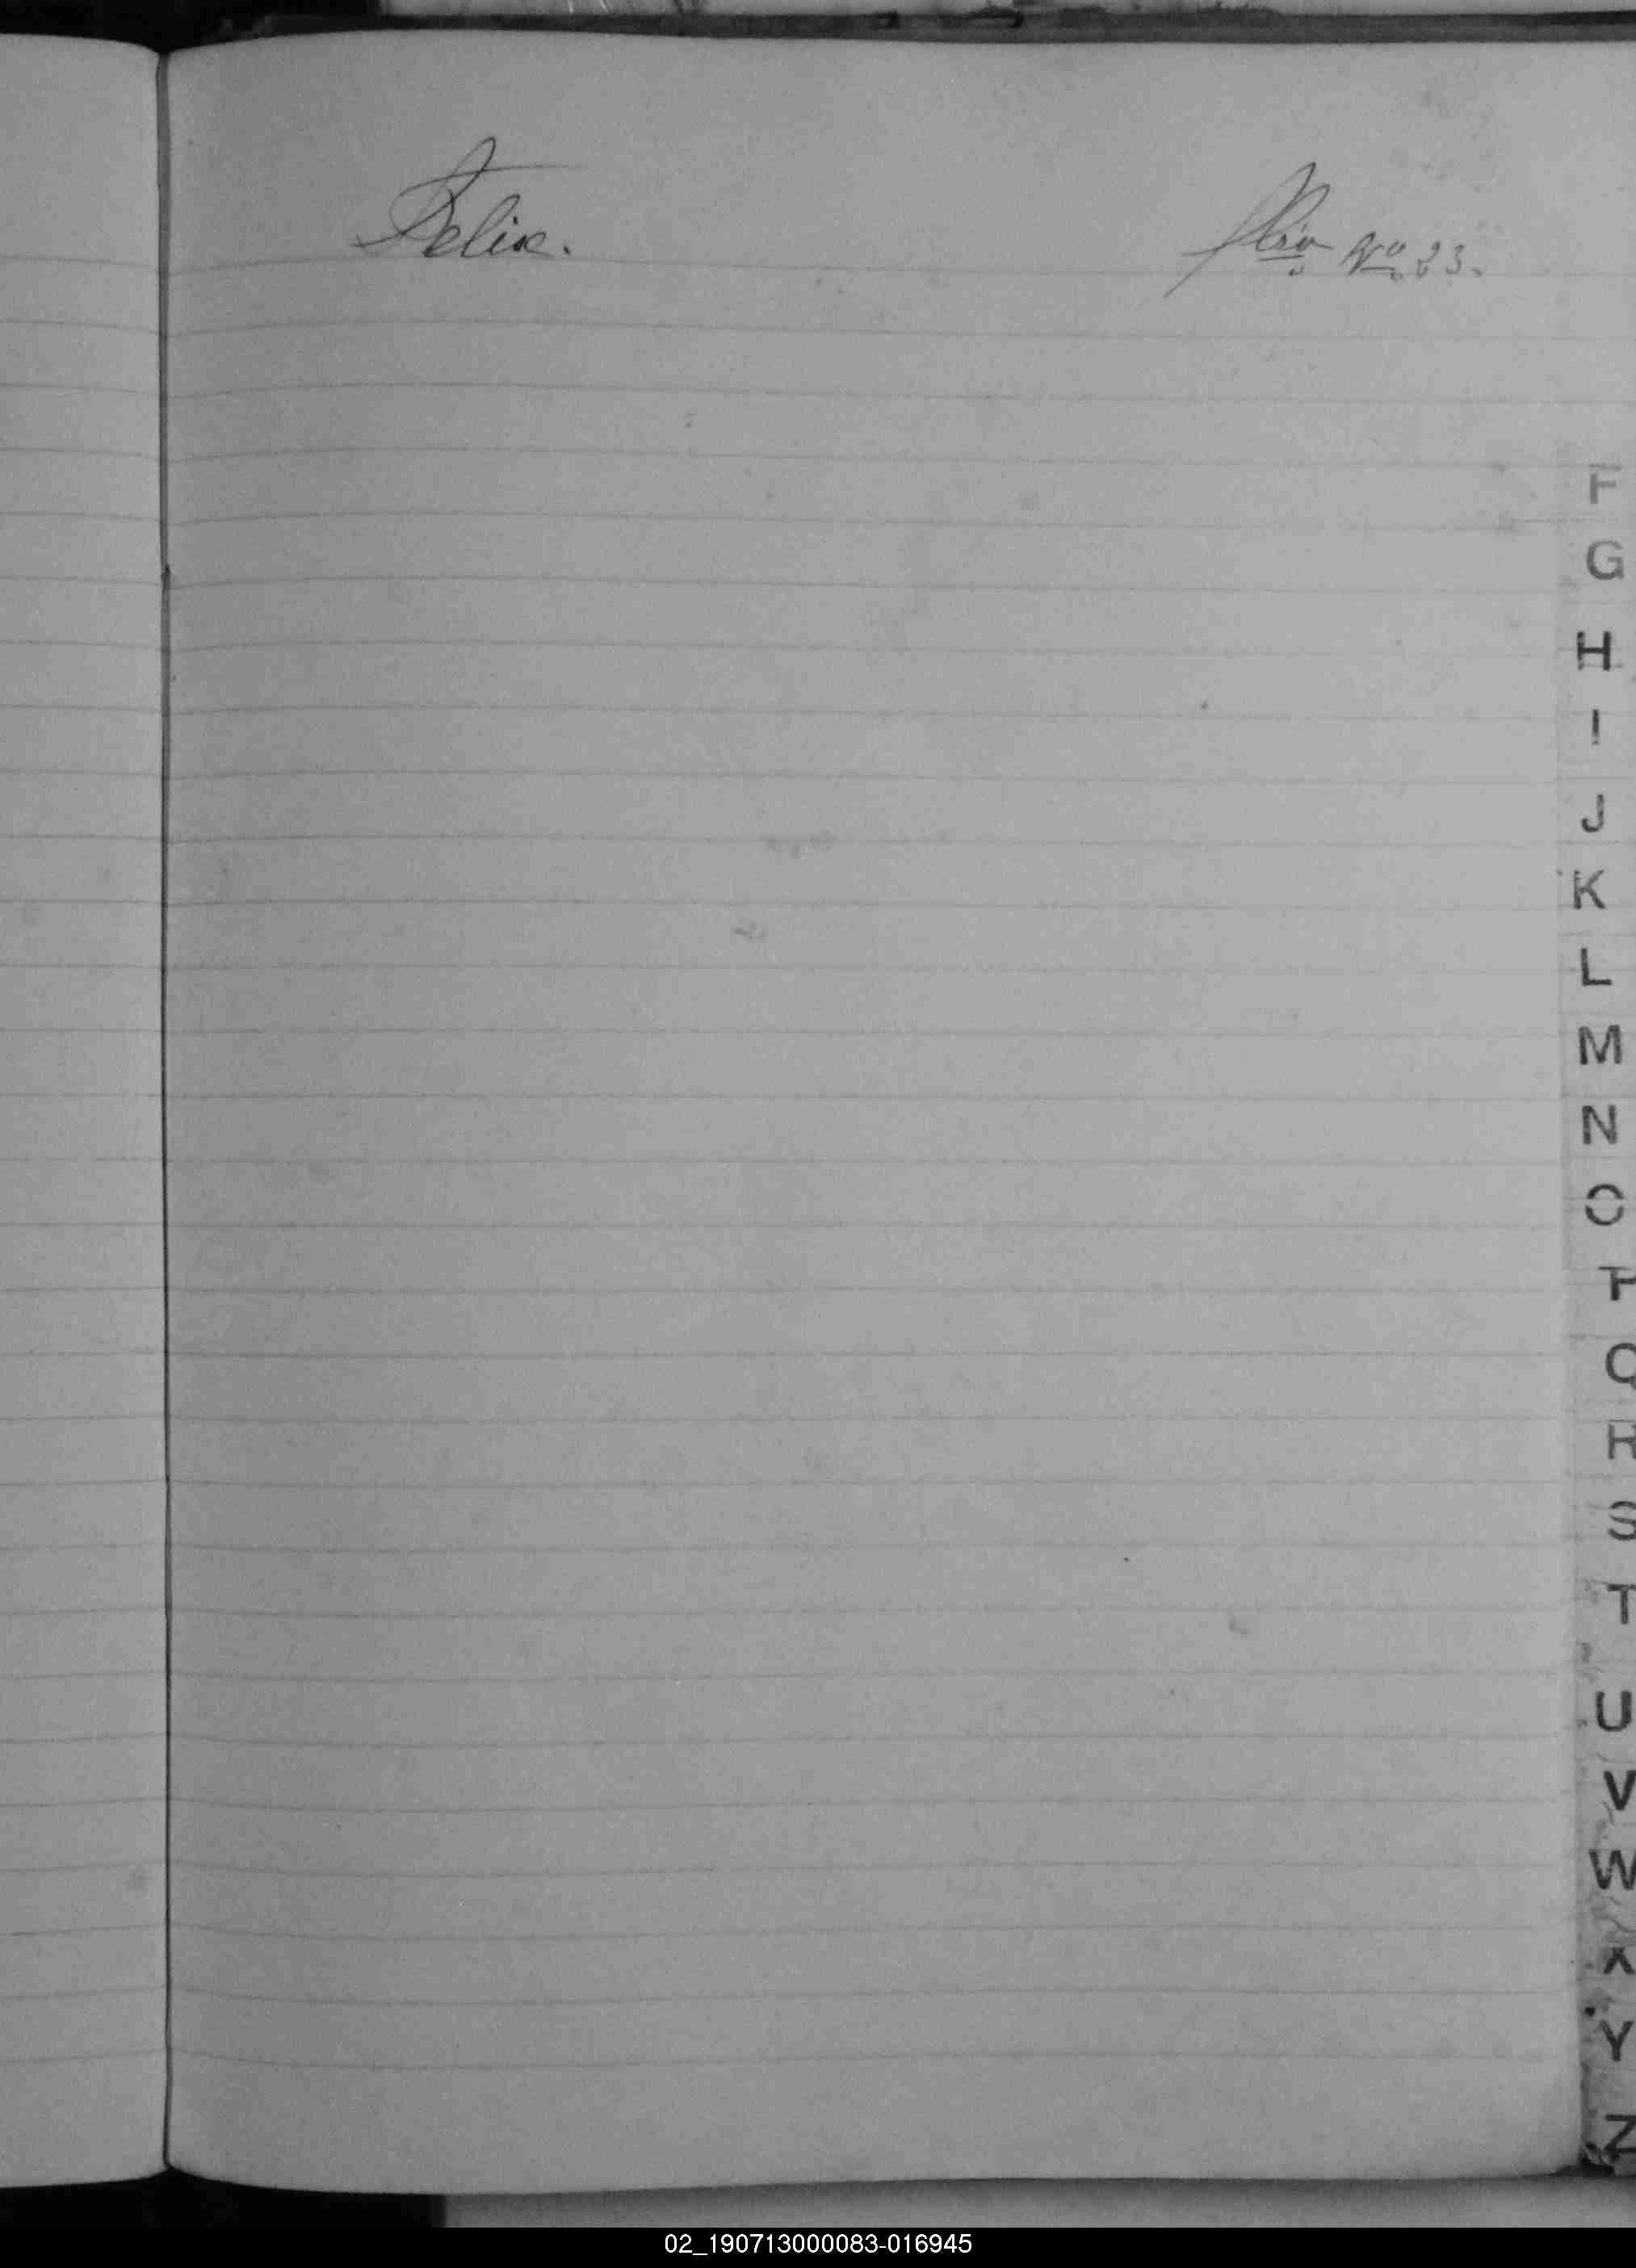 Felix.
No. 23.
F
G
H
I
J
K
L
M
N
O
P
Q
R
S
T
U
V
W
X
Y
Z
02_190713000083-016945